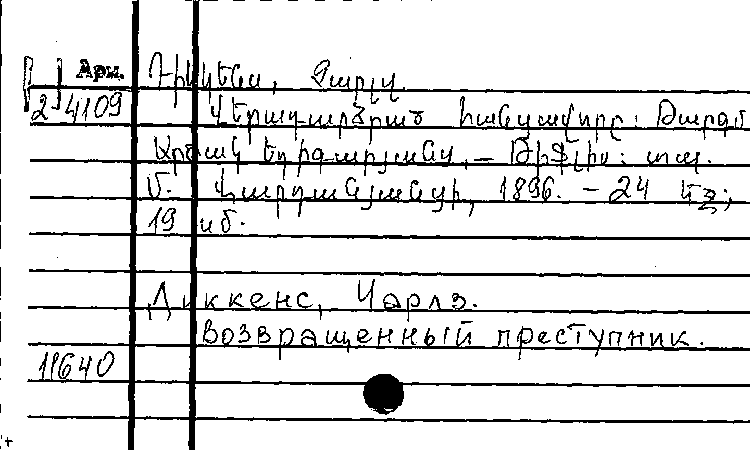 Арм. Դիկկենս, Չարլզ.
2 4109 Վերադարձրած հանցավորը: Թարգմ
Արշակ Եղիազարյանս, – Թիֆլիս: տպ.
Մ. Վարդանյանցի, 1896. – 24 եջ;
19 սմ.
Диккенс, Чарлз.
Возвращенный преступник.
11640